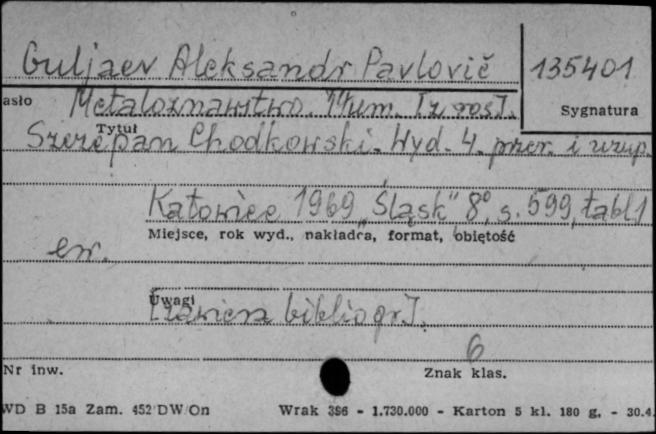 Guljaev Aleksandr Pavlovič 135401
asło Metaloznawstwo. Tłum. [z ros].
Sygnatura
Tytuł
Szczepan Chodkowski. Wyd. 4. przer. i uzup.
Katowice 1969 „Śląsk" 8°, s. 599, tabl 1
Miejsce, rok wyd., nakładca, format, objętość
Uwagi
[zawiera bibliogr].
6
Nr inw. Znak klas.
WD B 15a Zam. 452 DW/On Wrak 386 - 1.730.000 - Karton 5 kl. 180 g. - 30.4.